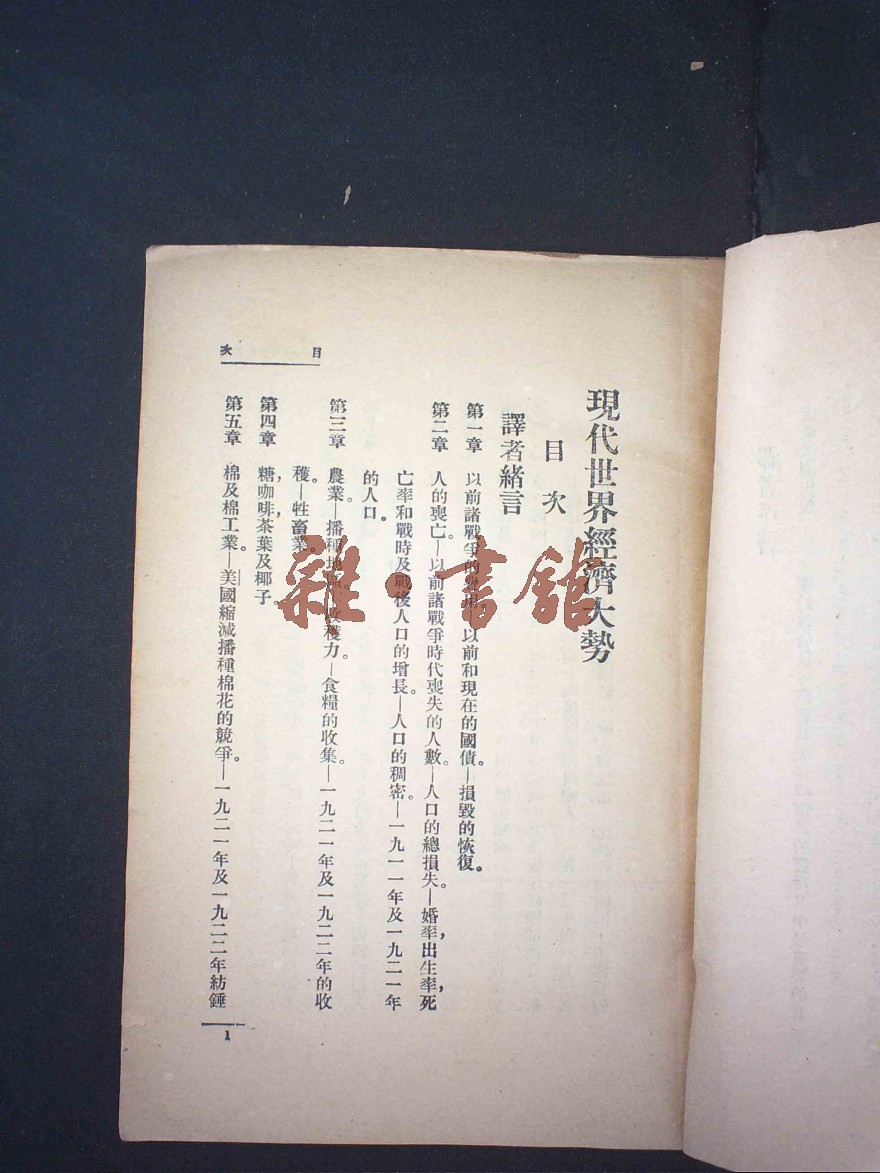 現代世界經濟大勢
目次
譯者緒言
第一章 以前諸戰爭的費用。—以前和現在的國債。—損毀的恢復。
第二章 人的喪亡—以前諸戰爭時代喪失的人數。—人口的總損失。—婚率,出生率,死
亡率和戰時及戰後人口的增長。—人口的稠密。—一九一一年及一九二一年
的人口。
第三章 農業—播種地區。收穫力。—食糧的收集。—一九二一年及一九二二年的收
穫。—牲畜業。
第四章 糖,咖啡,茶葉及椰子。
第五章 棉及棉工業。—美國縮減播種棉花的競爭。—一九二一年及一九二二年紡錘
目次
1
雜·書館